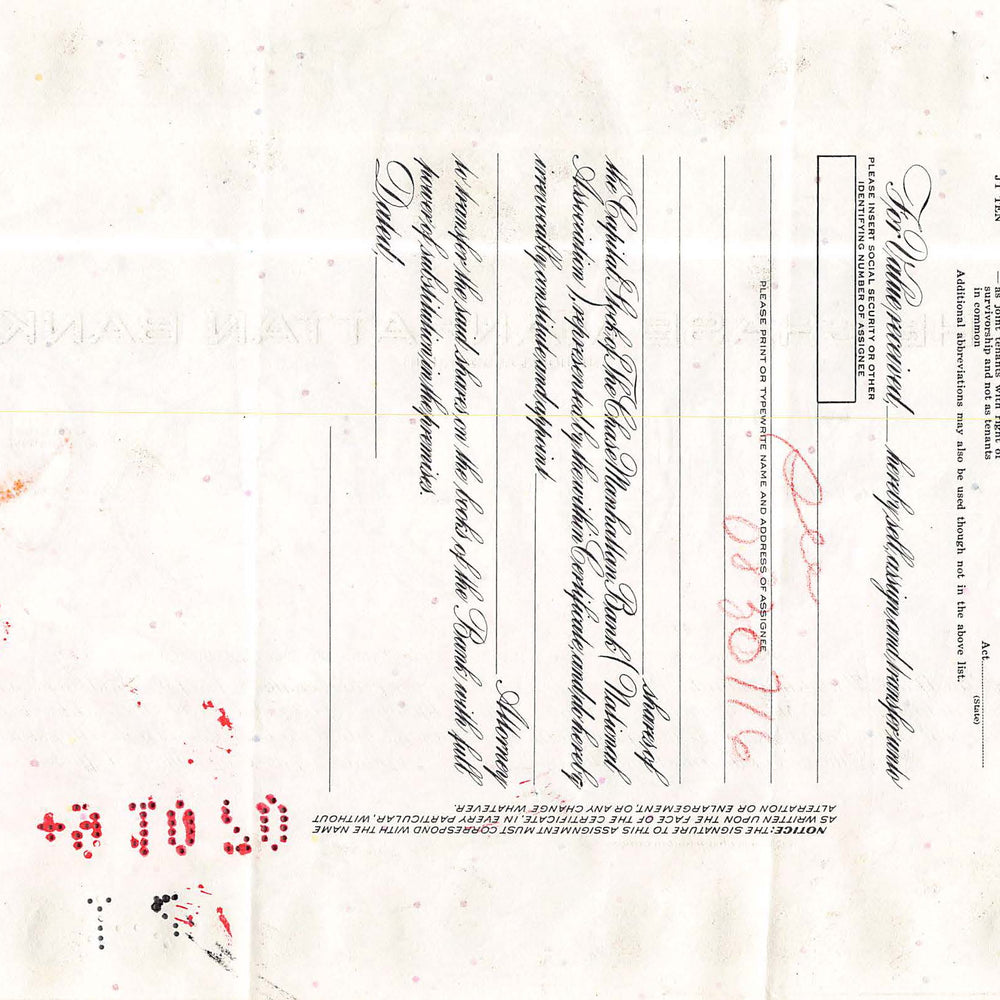 JT TEN — as joint tenants with right of
survivorship and not as tenants
in common
Act
(State)
Additional abbreviations may also be used though not in the above list.
For Value received, hereby sell, assign and transfer unto
PLEASE INSERT SOCIAL SECURITY OR OTHER
IDENTIFYING NUMBER OF ASSIGNEE
PLEASE PRINT OR TYPEWRITE NAME AND ADDRESS OF ASSIGNEE
shares of
the Capital Stock of The Chase Manhattan Bank (National
Association), represented by the within Certificate, and do hereby
irrevocably constitute and appoint
Attorney
to transfer the said shares on the books of the Bank, with full
power of substitution in the premises.
Dated,
NOTICE: THE SIGNATURE TO THIS ASSIGNMENT MUST CORRESPOND WITH THE NAME
AS WRITTEN UPON THE FACE OF THE CERTIFICATE, IN EVERY PARTICULAR, WITHOUT
ALTERATION OR ENLARGEMENT, OR ANY CHANGE WHATEVER.